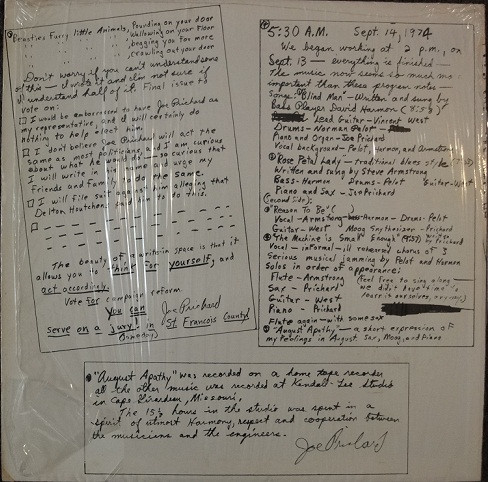 Beauties Furry little Animals, Pounding on your door
" " " Wallowing on your Floor
" " " begging you for more
" " " crawling out your door
Don't worry if you can't understand some
of this — I wrote it and I'm not sure if
I understand half of it. Final issue to
vote on:
□ I would be embarrassed to have Joe Prichard as
my representative, and I will certainly do
nothing to help elect him.
□ I don't believe Joe Prichard will act the
same as most politicians, and I am curious
about what he would do — so curious that
I will write in his name and urge my
Friends and Family to do the same.
□ I will file suit against him alleging that
Delton Houtchens paid him to do this.
□
The beauty of a certain space is that it
allows you to think for yourself, and
act accordingly.
Vote for campaign reform
you can
serve on a jury in
(someday)
Joe Prichard
St. Francois County
5:30 A.M. Sept. 14, 1974
We began working at 2 p.m., on
Sept. 13 — everything is finished —
the music now seems so much more
important than these program notes —
Songs: "Blind Man" — Written and sung by
Bass Player David Harmon
Lead Guitar - Vincent West
Drums - Norman Pelot
Piano and Organ - Joe Prichard
Vocal background - Pelot, Harmon, and Armstrong
Rose Petal Lady — traditional blues style
Written and sung by Steve Armstrong
Bass - Harmon Drums - Pelot Guitar - West
Piano and Sax - Joe Prichard
(Second side):
"Reason To Be"
Vocal - Armstrong Bass - Harmon - Drums - Pelot
Guitar - West Moog Synthesizer - Prichard
"The Machine is Small Enough" by Prichard
Vocal — informal — ill rehearsed chorus of 3
Serious musical jamming by Pelot and Harmon
Solos in order of appearance:
Flute - Armstrong
Sax - Prichard
Guitar - West
Piano - Prichard
Flute again — with some sax
(Feel free to sing along —
we didn't
ourselves,
"August Apathy" — a short expression of
my feelings in August. Sax, Moog, and Piano
"August Apathy" was recorded on a home tape recorder
all the other music was recorded at Kendall-Lee Studio
in Cape Girardeau, Missouri.
The 15½ hours in the studio was spent in a
spirit of utmost Harmony, respect and cooperation between
the musicians and the engineers.
Joe Prichard